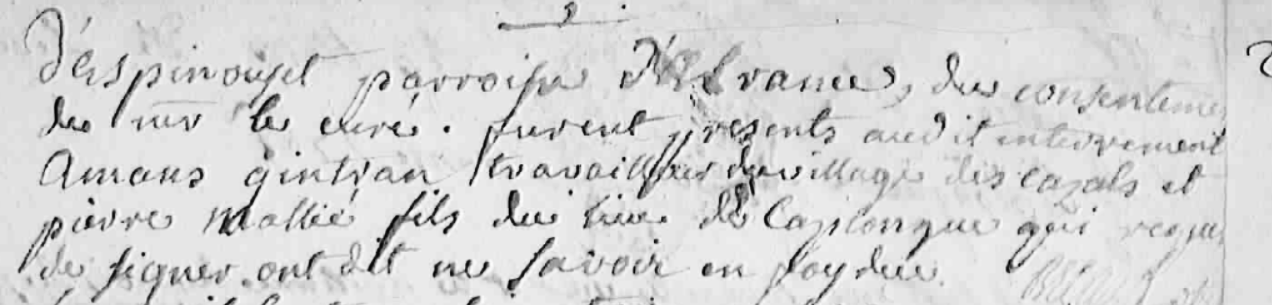 d'espinouset parroisse d'Albrance, du consenteme
de mr le curé. furent presents audit enterrement
Amans gintran travailleur du village des cazals et
pierre mallié fils du lieu de Caplongue qui requi
de signer ont dit ne savoir en foy de